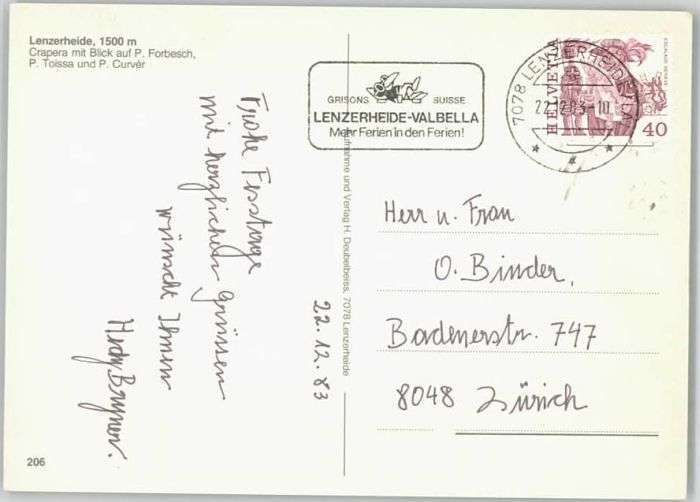 Lenzerheide, 1500 m
Crapera mit Blick auf P. Forbesch,
P. Toissa und P. Curvér
GRISONS SUISSE
LENZERHEIDE-VALBELLA
Mehr Ferien in den Ferien!
7078 LENZERHEIDE
22.12.83-10
HELVETIA
40
Frohe Festtage
mit herzlichen Grüssen
wünscht Ihnen
Hedy
22.12.83
Aufnahme und Verlag H. Deubelbeiss, 7078 Lenzerheide
Herr u. Frau
O. Binder,
Badenerstr. 747
8048 Zürich
206